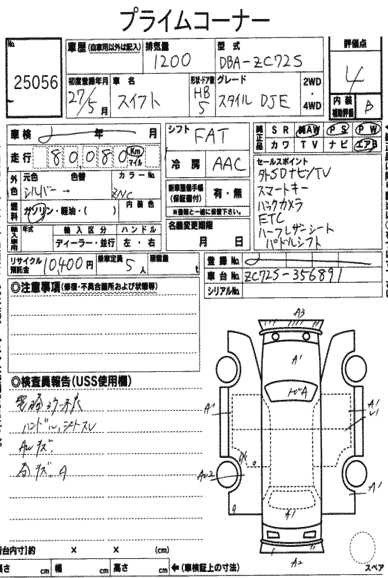 プライムコーナー
No. 25056
車歴 (自家用以外は記入) 排気量 1200 型式 DBA-ZC72S 評価点 4
初度登録年月 27/5月 車名 スイフト 形状・ドア数 HB 5 グレード スタイル DJE 2WD・4WD 内装補助評価 B
車検 年 月 シフト FAT 純正品 SR 純AW PS PW
カワ TV ナビ エアB
走行 80080 Km マイル 冷房 AAC
セールスポイント
外SDナビ/TV
スマートキー
バックカメラ
ETC
ハーフレザーシート
パドルシフト
外色 元色 シルバー → 色替 カラーNo. ZNC
燃料 ガソリン・軽油・( ) 内装色
新車整備手帳(保証書付) 有・無
※書類と一緒に保管下さい。
輸入車用 年式 輸入区分 ディーラー・並行 ハンドル 左・右
名義変更期限 月 日
リサイクル預託金 10400円 乗車定員 5人 積載量 t
登録No.
車台No. ZC72S-356891
シリアルNo.
◎注意事項(修復・不具合箇所および状態等)
◎検査員報告(USS使用欄)
ハンドル、シートスレ
AWキズ
A3
A'
トビA
A'
A1
A2
荷台内寸)約 × × (cm)
長さ cm 幅 cm 高さ cm ←(車検証上の寸法)
スペア